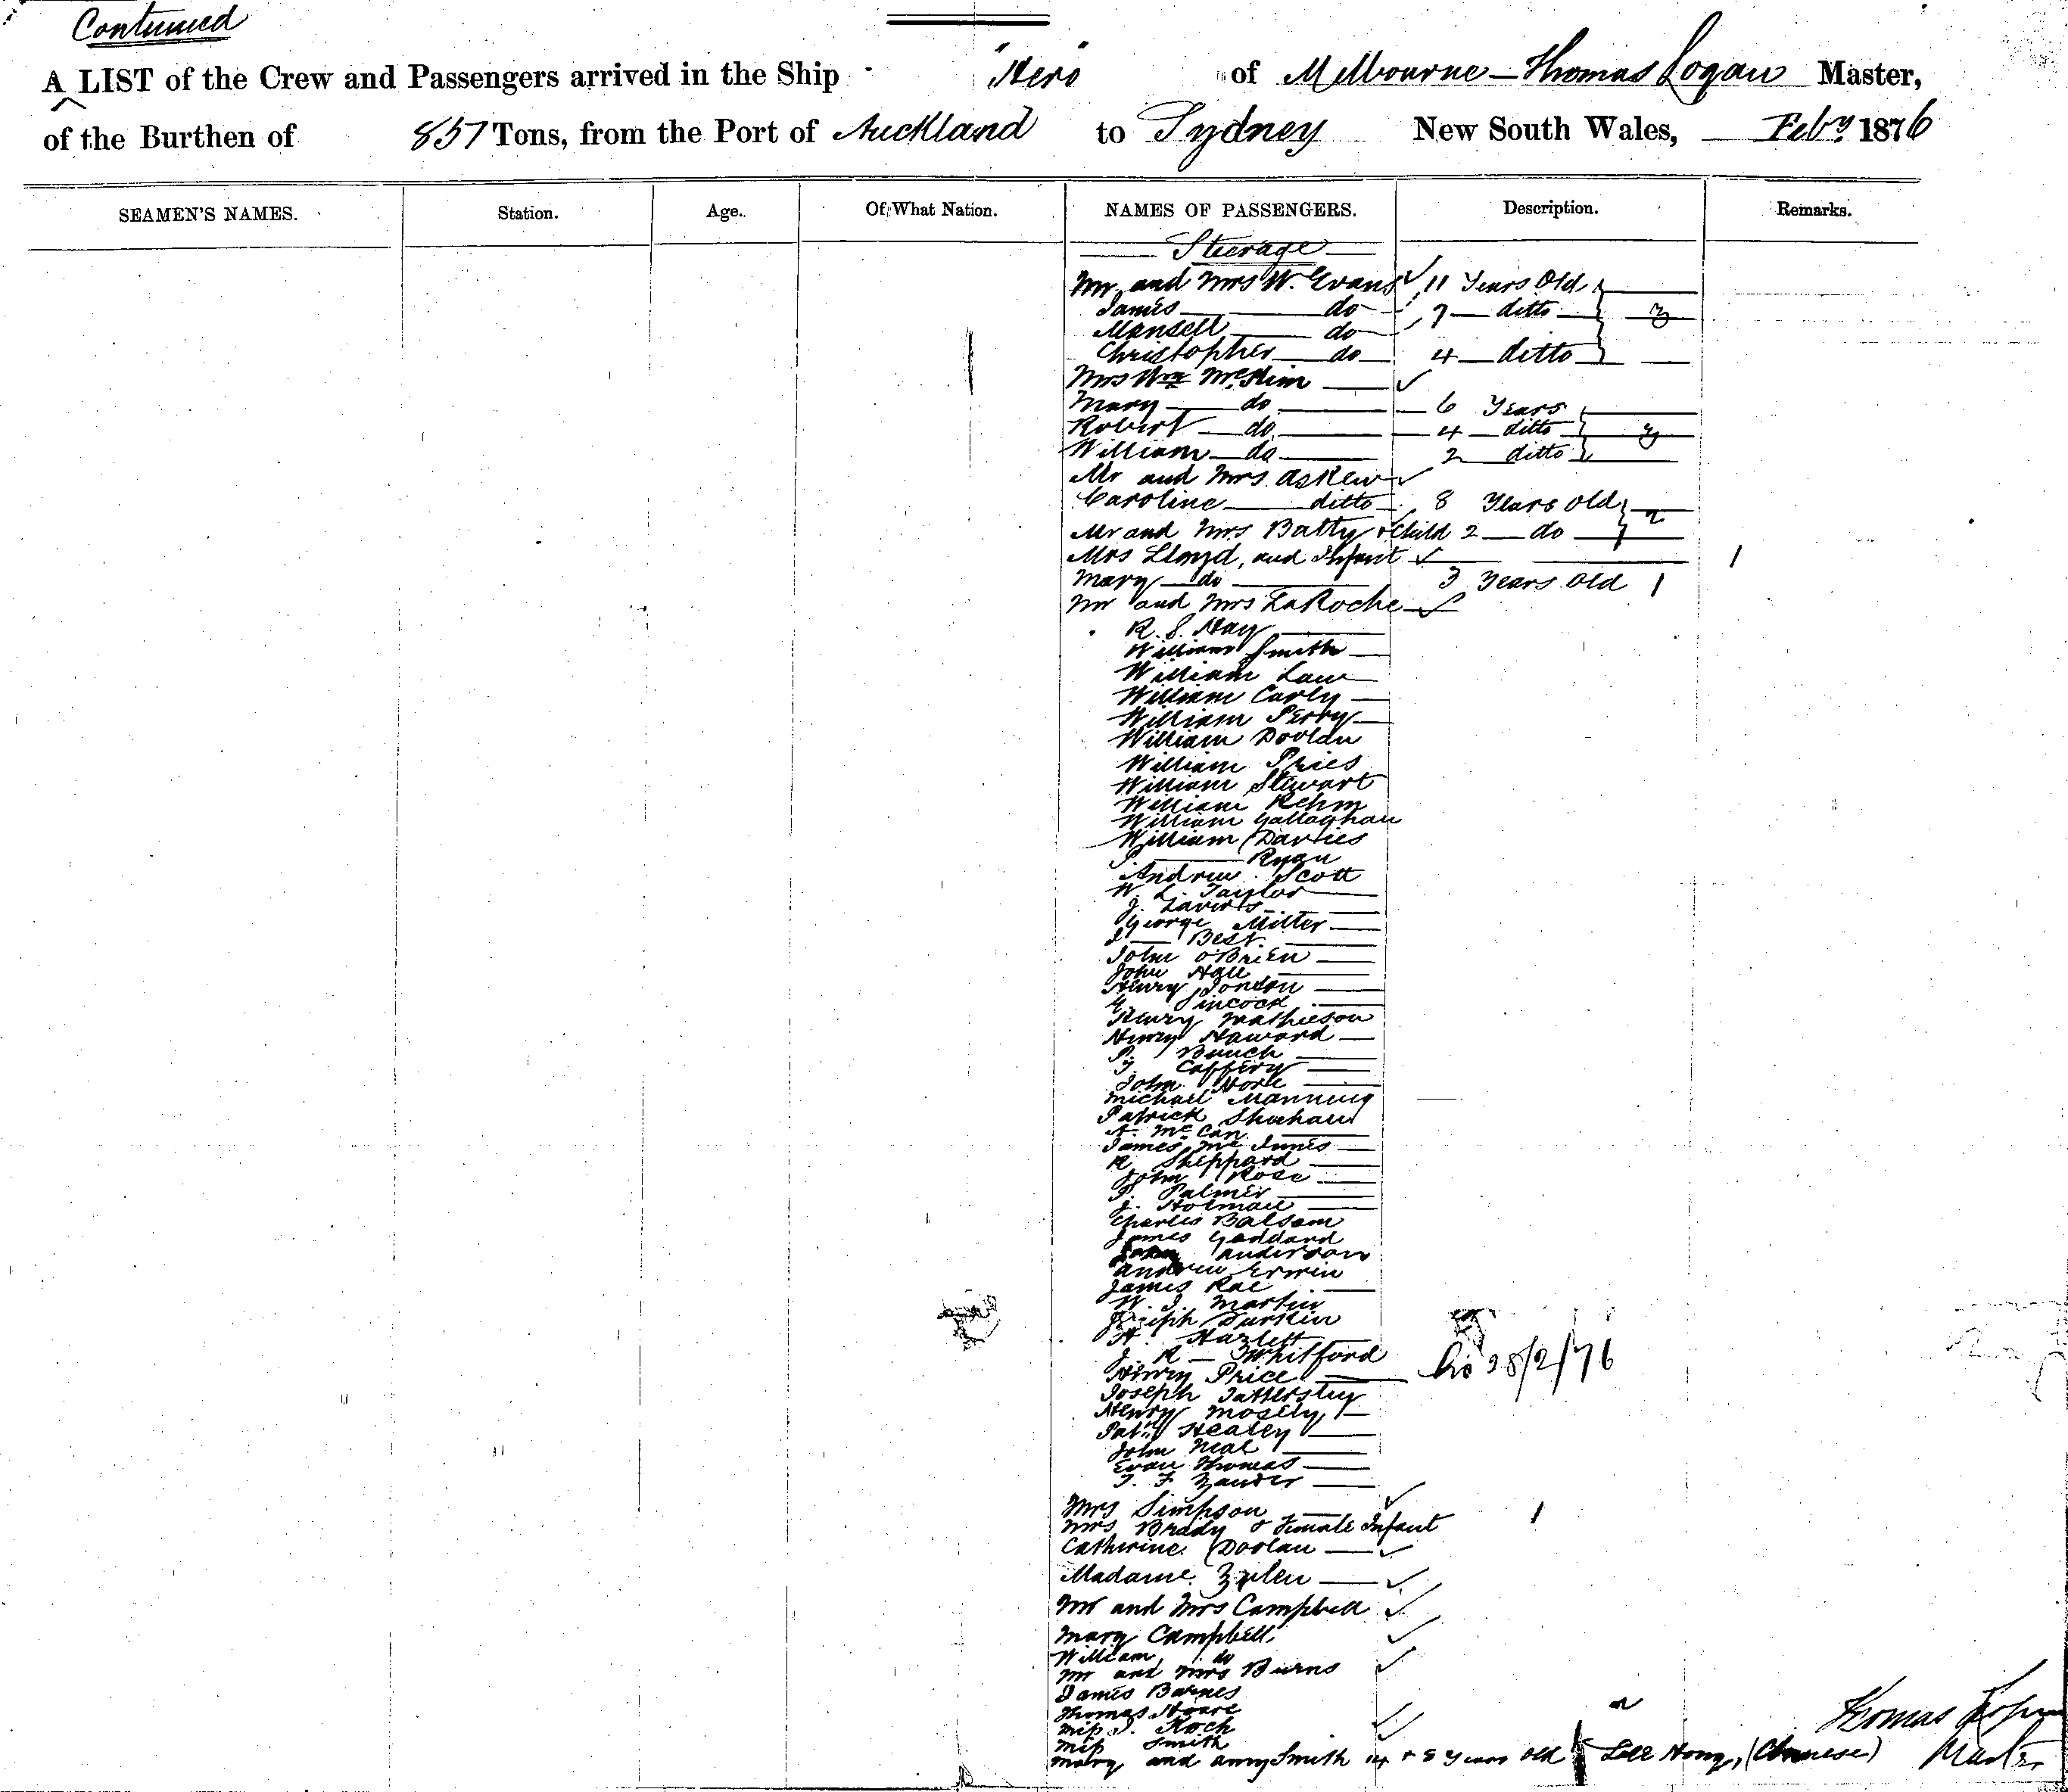 Continued
A LIST of the Crew and Passengers arrived in the Ship "Hero" of Melbourne - Thomas Logan Master,
of the Burthen of 857 Tons, from the Port of Auckland to Sydney New South Wales, Feby 1876
SEAMEN'S NAMES. Station. Age. Of What Nation. NAMES OF PASSENGERS. Description. Remarks.
Steerage
Mr and Mrs W. Evans 11 Years Old
James do 7 ditto 3
Mansell do
Christopher do 4 ditto
Mrs Wm McKim
Mary do 6 Years
Robert do 4 ditto 3
William do 2 ditto
Mr and Mrs Askew
Caroline ditto 8 Years Old 2
Mr and Mrs Batty & Child 2 do
Mrs Lloyd, and Infant 1
Mary do 3 Years Old 1
Mr and Mrs LaRoche
R. S. Hay
William Smith
William Law
William Carly
William Perry
William Doolan
William Pries
William Stewart
William Rehm
William Gallaghan
William Davies
Ryan
Andrew Scott
W. L. Taylor
J.
George Miller
Best
John O'Brien
John Hall
Henry London
Henry Mathieson
Henry Howard
P. Bunch
Caffery
John
Michael Manning
Patrick Shahan
A. McCan
James McInnes
R. Sheppard
John Rose
P. Palmer
J. Holman
Charles Balsam
James Goddard
Anderson
Andrew Erwin
James Rae
W. J. Martin
Joseph Durkin
H. Hazlett
J. R. Whitford 28/2/76
Henry Price
Joseph Tattersley
Henry Mosely
Patk Healey
John Neal
Evan Thomas
T. F. Zander
Mrs Simpson 1
Mrs Brady & Female Infant
Catherine Doolan
Madame
Mr and Mrs Campbell
Mary Campbell
William do
Mr and Mrs Burns
James Barnes
Thomas Hoare
Miss J. Koch Thomas Logan
Miss Smith
Mary and Amy Smith 14 & 8 Years old Lee Hong, (Chinese) Master